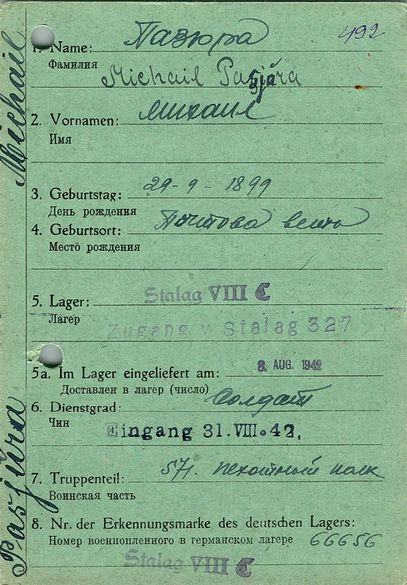 492
1. Name: Пазюра
Фамилия
Michail Pasjura
2. Vornamen: Михаил
Имя
3. Geburtstag: 29-9-1899
День рождения
4. Geburtsort:
Место рождения
5. Lager: Stalag VIII C
Лагер
Zugang v. Stalag 327
5a. Im Lager eingeliefert am: 8. AUG. 1942
Доставлен в лагер (число)
6. Dienstgrad: Солдат
Чин
Eingang 31.VIII.42,
7. Truppenteil: 571. пехотный полк
Воинская часть
8. Nr. der Erkennungsmarke des deutschen Lagers:
Номер военнопленного в германском лагере 66656
Stalag VIII C
Paszjura
Michail